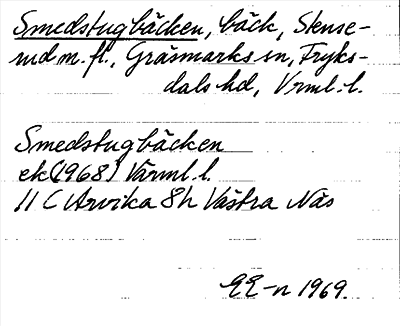 Smedstugbäcken, bäck, Stense-
rud m. fl., Gräsmarks sn, Fryks-
dals hd, Vrml. l.
Smedstugbäcken
ek (1968) Värml. l.
11 C Arvika 8h Västra Näs
EE-n 1969.